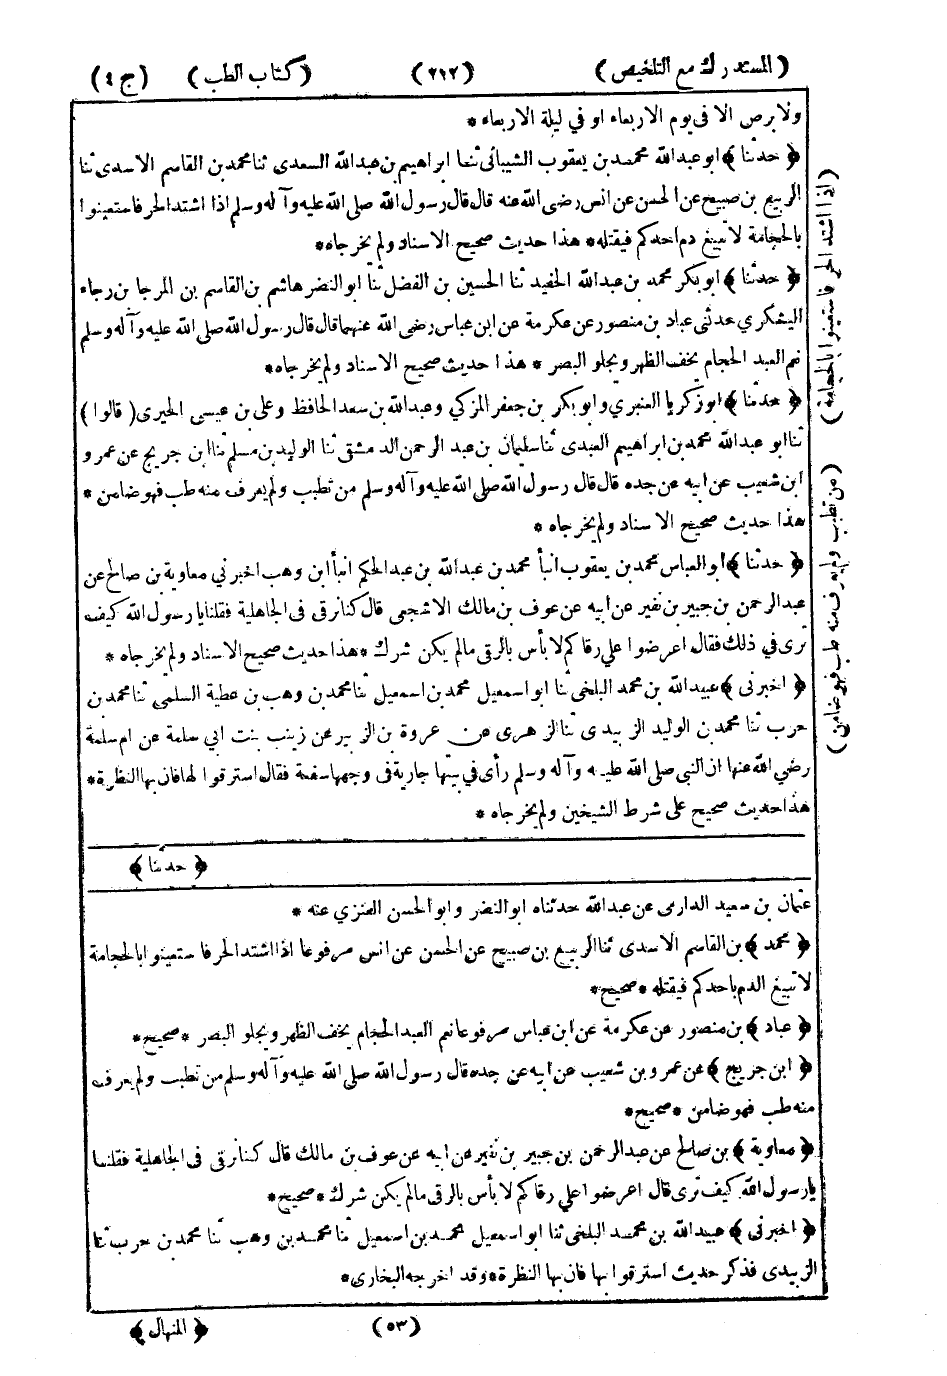 (المستدرك مع التلخيص) (٢١٢) (كتاب الطب) (ج ٤)
ولا برص الا فى يوم الاربعاء او في ليلة الاربعاء *
﴿ حدثنا ﴾ ابو عبد الله محمد بن يعقوب الشيبانى ثنا ابراهيم بن عبد الله السعدى ثنا محمد بن القاسم الاسدى ثنا
الربيع بن صبيح عن الحسن عن انس رضى الله عنه قال قال رسول الله صلى الله عليه وآله وسلم اذا اشتد الحر فاستعينوا
بالحجامة لا تبيغ دم احدكم فيقتله * هذا حديث صحيح الاسناد ولم يخرجاه *
﴿ حدثنا ﴾ ابو بكر محمد بن عبد الله الحفيد ثنا الحسين بن الفضل ثنا ابو النضر هاشم بن القاسم بن المرجا بن رجاء
اليشكري حدثنى عباد بن منصور عن عكرمة عن ابن عباس رضى الله عنهما قال قال رسول الله صلى الله عليه وآله وسلم
نعم العبد الحجام يخف الظهر ويجلو البصر * هذا حديث صحيح الاسناد ولم يخرجاه *
﴿ حدثنا ﴾ ابو زكريا العنبري وابو بكر بن جعفر المزكي وعبد الله بن سعد الحافظ وعلى بن عيسى الحيرى (قالوا)
ثنا ابو عبد الله محمد بن ابراهيم العبدى ثنا سليمان بن عبد الرحمن الدمشقى ثنا الوليد بن مسلم ثنا ابن جريج عن عمرو
ابن شعيب عن ابيه عن جده قال قال رسول الله صلى الله عليه وآله وسلم من تطبب ولم يعرف منه طب فهو ضامن *
هذا حديث صحيح الاسناد ولم يخرجاه *
﴿ حدثنا ﴾ ابو العباس محمد بن يعقوب انبأ محمد بن عبد الله بن عبد الحكم انبأ ابن وهب اخبرني معاوية بن صالح عن
عبد الرحمن بن جبير بن نفير عن ابيه عن عوف بن مالك الاشجعى قال كنا نرقى فى الجاهلية فقلنا يا رسول الله كيف
ترى في ذلك فقال اعرضوا علي رقاكم لا بأس بالرقى مالم يكن شرك * هذا حديث صحيح الاسناد ولم يخرجاه *
﴿ اخبرنى ﴾ عبيد الله بن محمد البلخى ثنا ابو اسمعيل محمد بن اسمعيل ثنا محمد بن وهب بن عطية السلمى ثنا محمد بن
حرب ثنا محمد بن الوليد الزبيدى ثنا الزهرى عن عروة بن الزبير عن زينب بنت ابي سلمة عن ام سلمة
رضي الله عنها ان النبي صلى الله عليه وآله وسلم رأى في بيتها جارية فى وجهها سفعة فقال استرقوا لها فان بها النظرة *
هذا حديث صحيح على شرط الشيخين ولم يخرجاه *
﴿ حدثنا ﴾
عثمان بن سعيد الدارمى عن عبد الله حدثناه ابو النضر وابو الحسن العنزي عنه *
﴿ محمد ﴾ بن القاسم الاسدى ثنا الربيع بن صبيح عن الحسن عن انس مرفوعا اذا اشتد الحر فاستعينوا بالحجامة
لا تبيغ الدم باحدكم فيقتله * صحيح *
﴿ عباد ﴾ بن منصور عن عكرمة عن ابن عباس مرفوعا نعم العبد الحجام يخف الظهر ويجلو البصر * صحيح *
﴿ ابن جريج ﴾ عن عمرو بن شعيب عن ابيه عن جده قال رسول الله صلى الله عليه وآله وسلم من تطبب ولم يعرف
منه طب فهو ضامن * صحيح *
﴿ معاوية ﴾ بن صالح عن عبد الرحمن بن جبير بن نفير عن ابيه عن عوف بن مالك قال كنا نرقى فى الجاهلية فقلنا
يا رسول الله كيف ترى قال اعرضوا علي رقاكم لا بأس بالرقى مالم يكن شرك * صحيح *
﴿ اخبرنى ﴾ عبيد الله بن محمد البلخى ثنا ابو اسمعيل محمد بن اسمعيل ثنا محمد بن وهب ثنا محمد بن حرب ثنا
الزبيدى فذكر حديث استرقوا بها فان بها النظرة * وقد اخرجه البخارى *
(٥٣) ﴿ المنهال ﴾
(اذا اشتد الحر فاستعينوا بالحجامة)
(من تطبب ولم يعرف منه طب فهو ضامن)